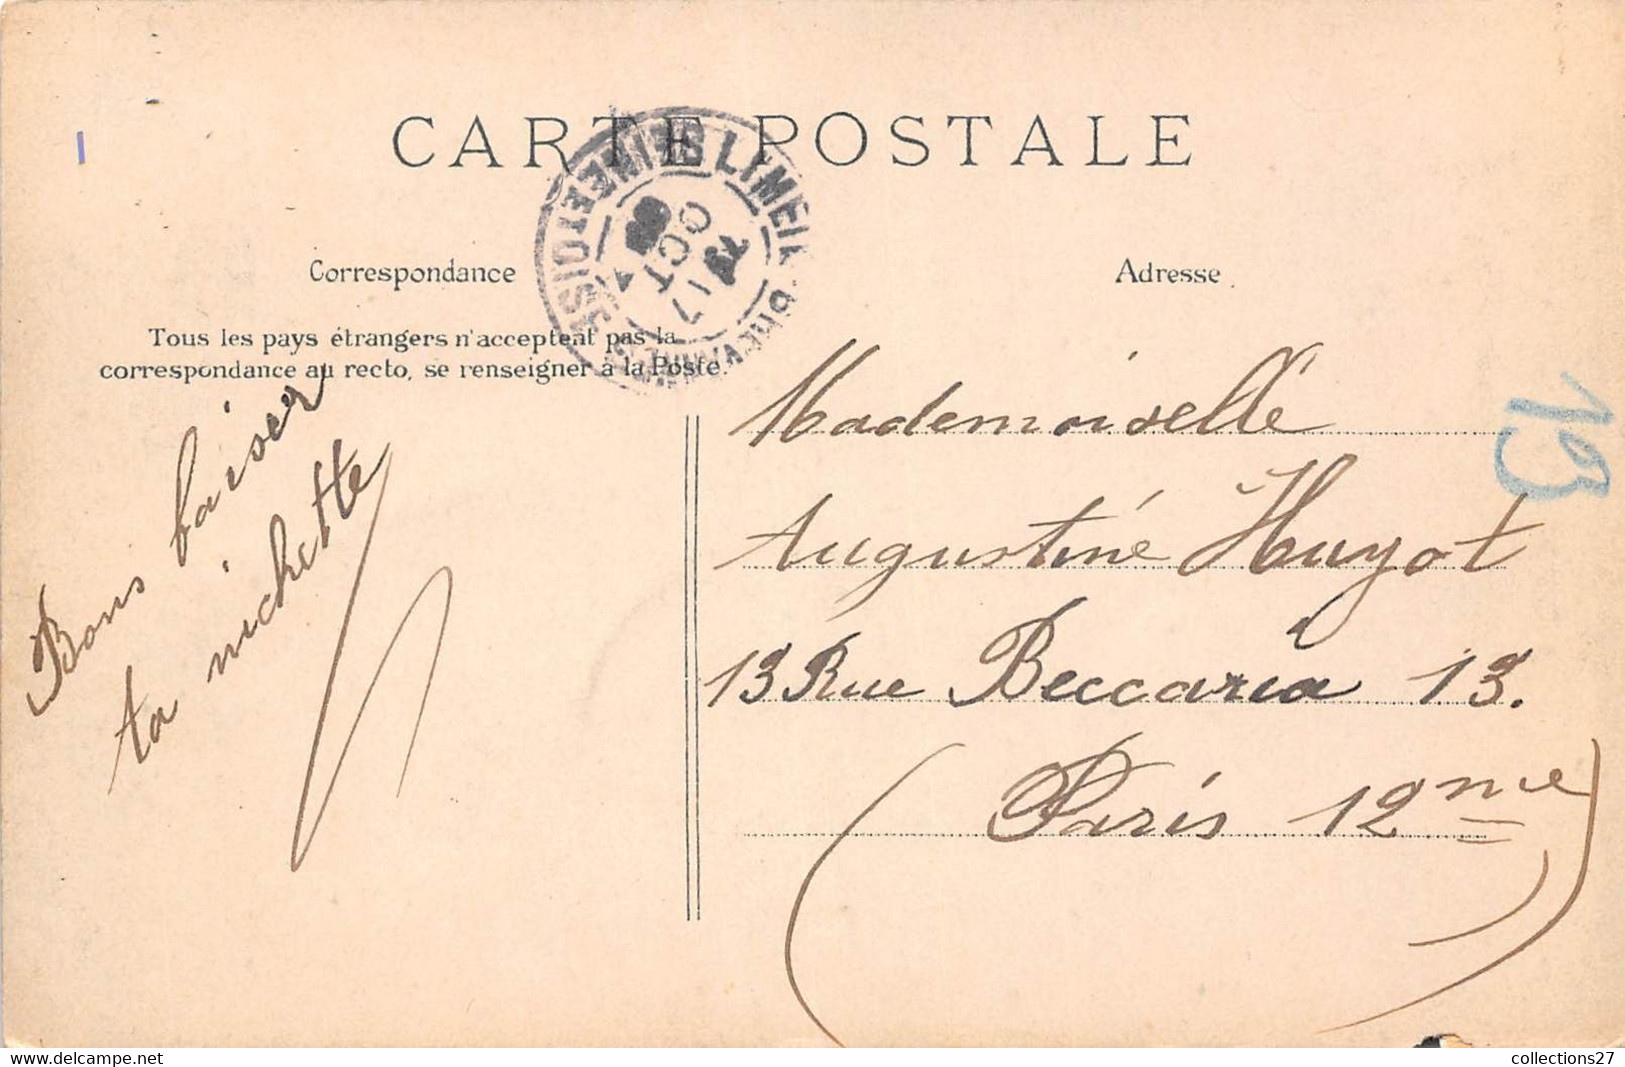 CARTE POSTALE
LIMEIL-BREVANNES
SEINE-ET-OISE
17
OCT
Correspondance
Adresse
Tous les pays étrangers n'acceptent pas la
correspondance au recto, se renseigner à la Poste.
Bons baiser
ta nichette
Mademoiselle
Augustine Huyot
13 Rue Beccaria 13.
(Paris 12me)
collections27